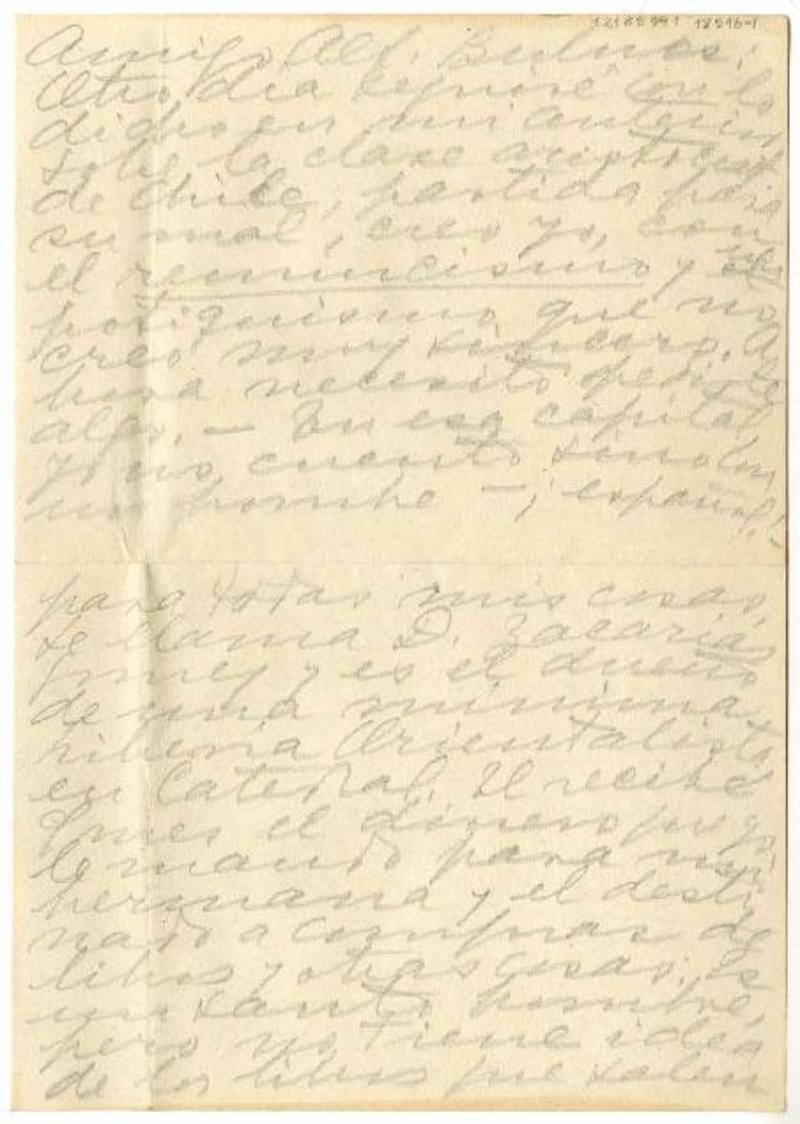 Amigo Alf. Bulnes:
Otro día seguiré con lo
dicho en mi anterior,
sobre la clase aristocrat.
de Chile, partida para
su mal, creo yo, con
el y un
que no
creo muy sincero. A
hora necesito pedirle
algo. — En esa capital
yo no cuento sino con
un hombre — ¡español!—
para todas mis cosas,
Se llama D. Zacarías
Gomez y es el dueño
de una mínima
librería Orientalista
en Catedral. El recibe
pues el dinero que yo
le mando para mi
hermana y el desti
nado a compras de
libros y otras cosas. Es
un santo hombre,
pero no tiene idea
de los libros que salen